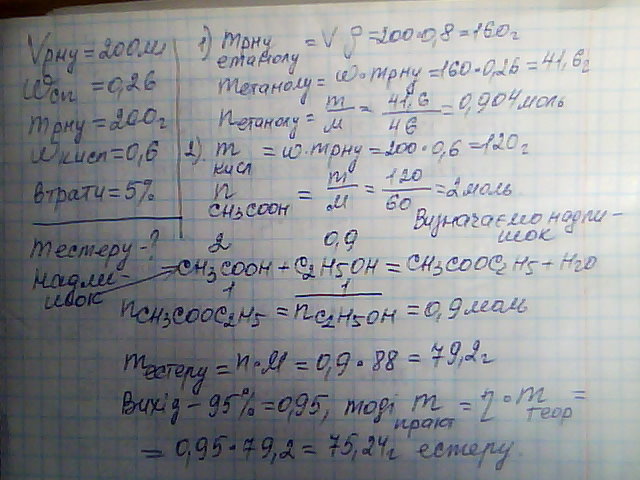 Vрну = 200мл
wсп = 0,26
mрну = 200г
wкисп = 0,6
втрати = 5%
mестеру - ?
надли-
шок
1) mрну етанолу = V ρ = 200·0,8 = 160г
mетанолу = w·mрну = 160·0,26 = 41,6г
nетанолу = m/M = 41,6/46 = 0,904моль
2). m кисл = w·mрну = 200·0,6 = 120г
n CH3COOH = m/M = 120/60 = 2моль.
Визначаємо надли-
шок
2 0,9
CH3COOH + C2H5OH = CH3COOC2H5 + H2O
1 1
nCH3COOC2H5 = nC2H5OH = 0,9моль
mестеру = n·M = 0,9·88 = 79,2г
Вихід - 95% = 0,95, тоді m практ = η·m теор =
= 0,95·79,2 = 75,24г естеру.